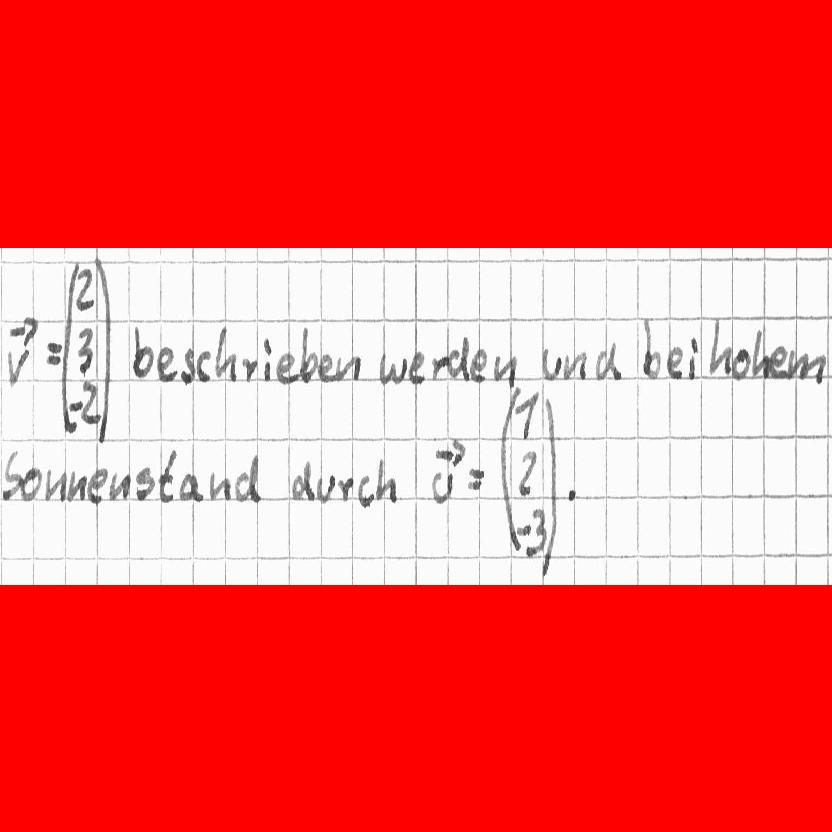 $\vec{v} = \begin{pmatrix} 2 \\ 3 \\ -2 \end{pmatrix}$ beschrieben werden und bei hohem
Sonnenstand durch $\vec{v} = \begin{pmatrix} 1 \\ 2 \\ -3 \end{pmatrix}$.